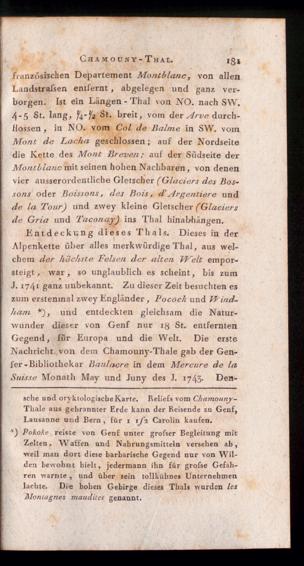 CHAMOUNY-THAL. 181
französischen Departement Montblanc, von allen
Landstraſsen entfernt, abgelegen und ganz ver-
borgen. Ist ein Längen-Thal von NO. nach SW.
4-5 St. lang, ¼-½ St. breit, vom der Arve durch-
flossen, in NO. vom Col de Balme in SW. vom
Mont de Lacha geschlossen; auf der Nordseite
die Kette des Mont Breven; auf der Südseite der
Montblanc mit seinen hohen Nachbaren, von denen
vier ausserordentliche Gletscher (Glaciers des Bos-
sons oder Boissons, des Bois, d'Argentiere und
de la Tour) und zwey kleine Gletscher (Glaciers
de Gria und Taconay) ins Thal hinabhängen.
Entdeckung dieses Thals. Dieses in der
Alpenkette über alles merkwürdige Thal, aus wel-
chem der höchste Felsen der alten Welt empor-
steigt, war, so unglaublich es scheint, bis zum
J. 1741 ganz unbekannt. Zu dieser Zeit besuchten es
zum erstenmal zwey Engländer, Pocock und Wind-
ham *), und entdeckten gleichsam die Natur-
wunder dieser von Genf nur 18 St. entfernten
Gegend, für Europa und die Welt. Die erste
Nachricht von dem Chamouny-Thale gab der Gen-
fer-Bibliothekar Baulacre in dem Mercure de la
Suisse Monath May und Juny des J. 1743. Den-
sche und oryktologische Karte. Reliefs vom Chamouny-
Thale aus gebrannter Erde kann der Reisende zu Genf,
Lausanne und Bern, für 1 1/2 Carolin kaufen.
*) Pokoke, reiste von Genf unter groſser Begleitung mit
Zelten, Waffen und Nahrungsmitteln versehen ab,
weil man dort diese barbarische Gegend nur von Wil-
den bewohnt hielt, jedermann ihn für groſse Gefah-
ren warnte, und über sein tollkühnes Unternehmen
lachte. Die hohen Gebirge dieses Thals wurden les
Montagnes maudites genannt.